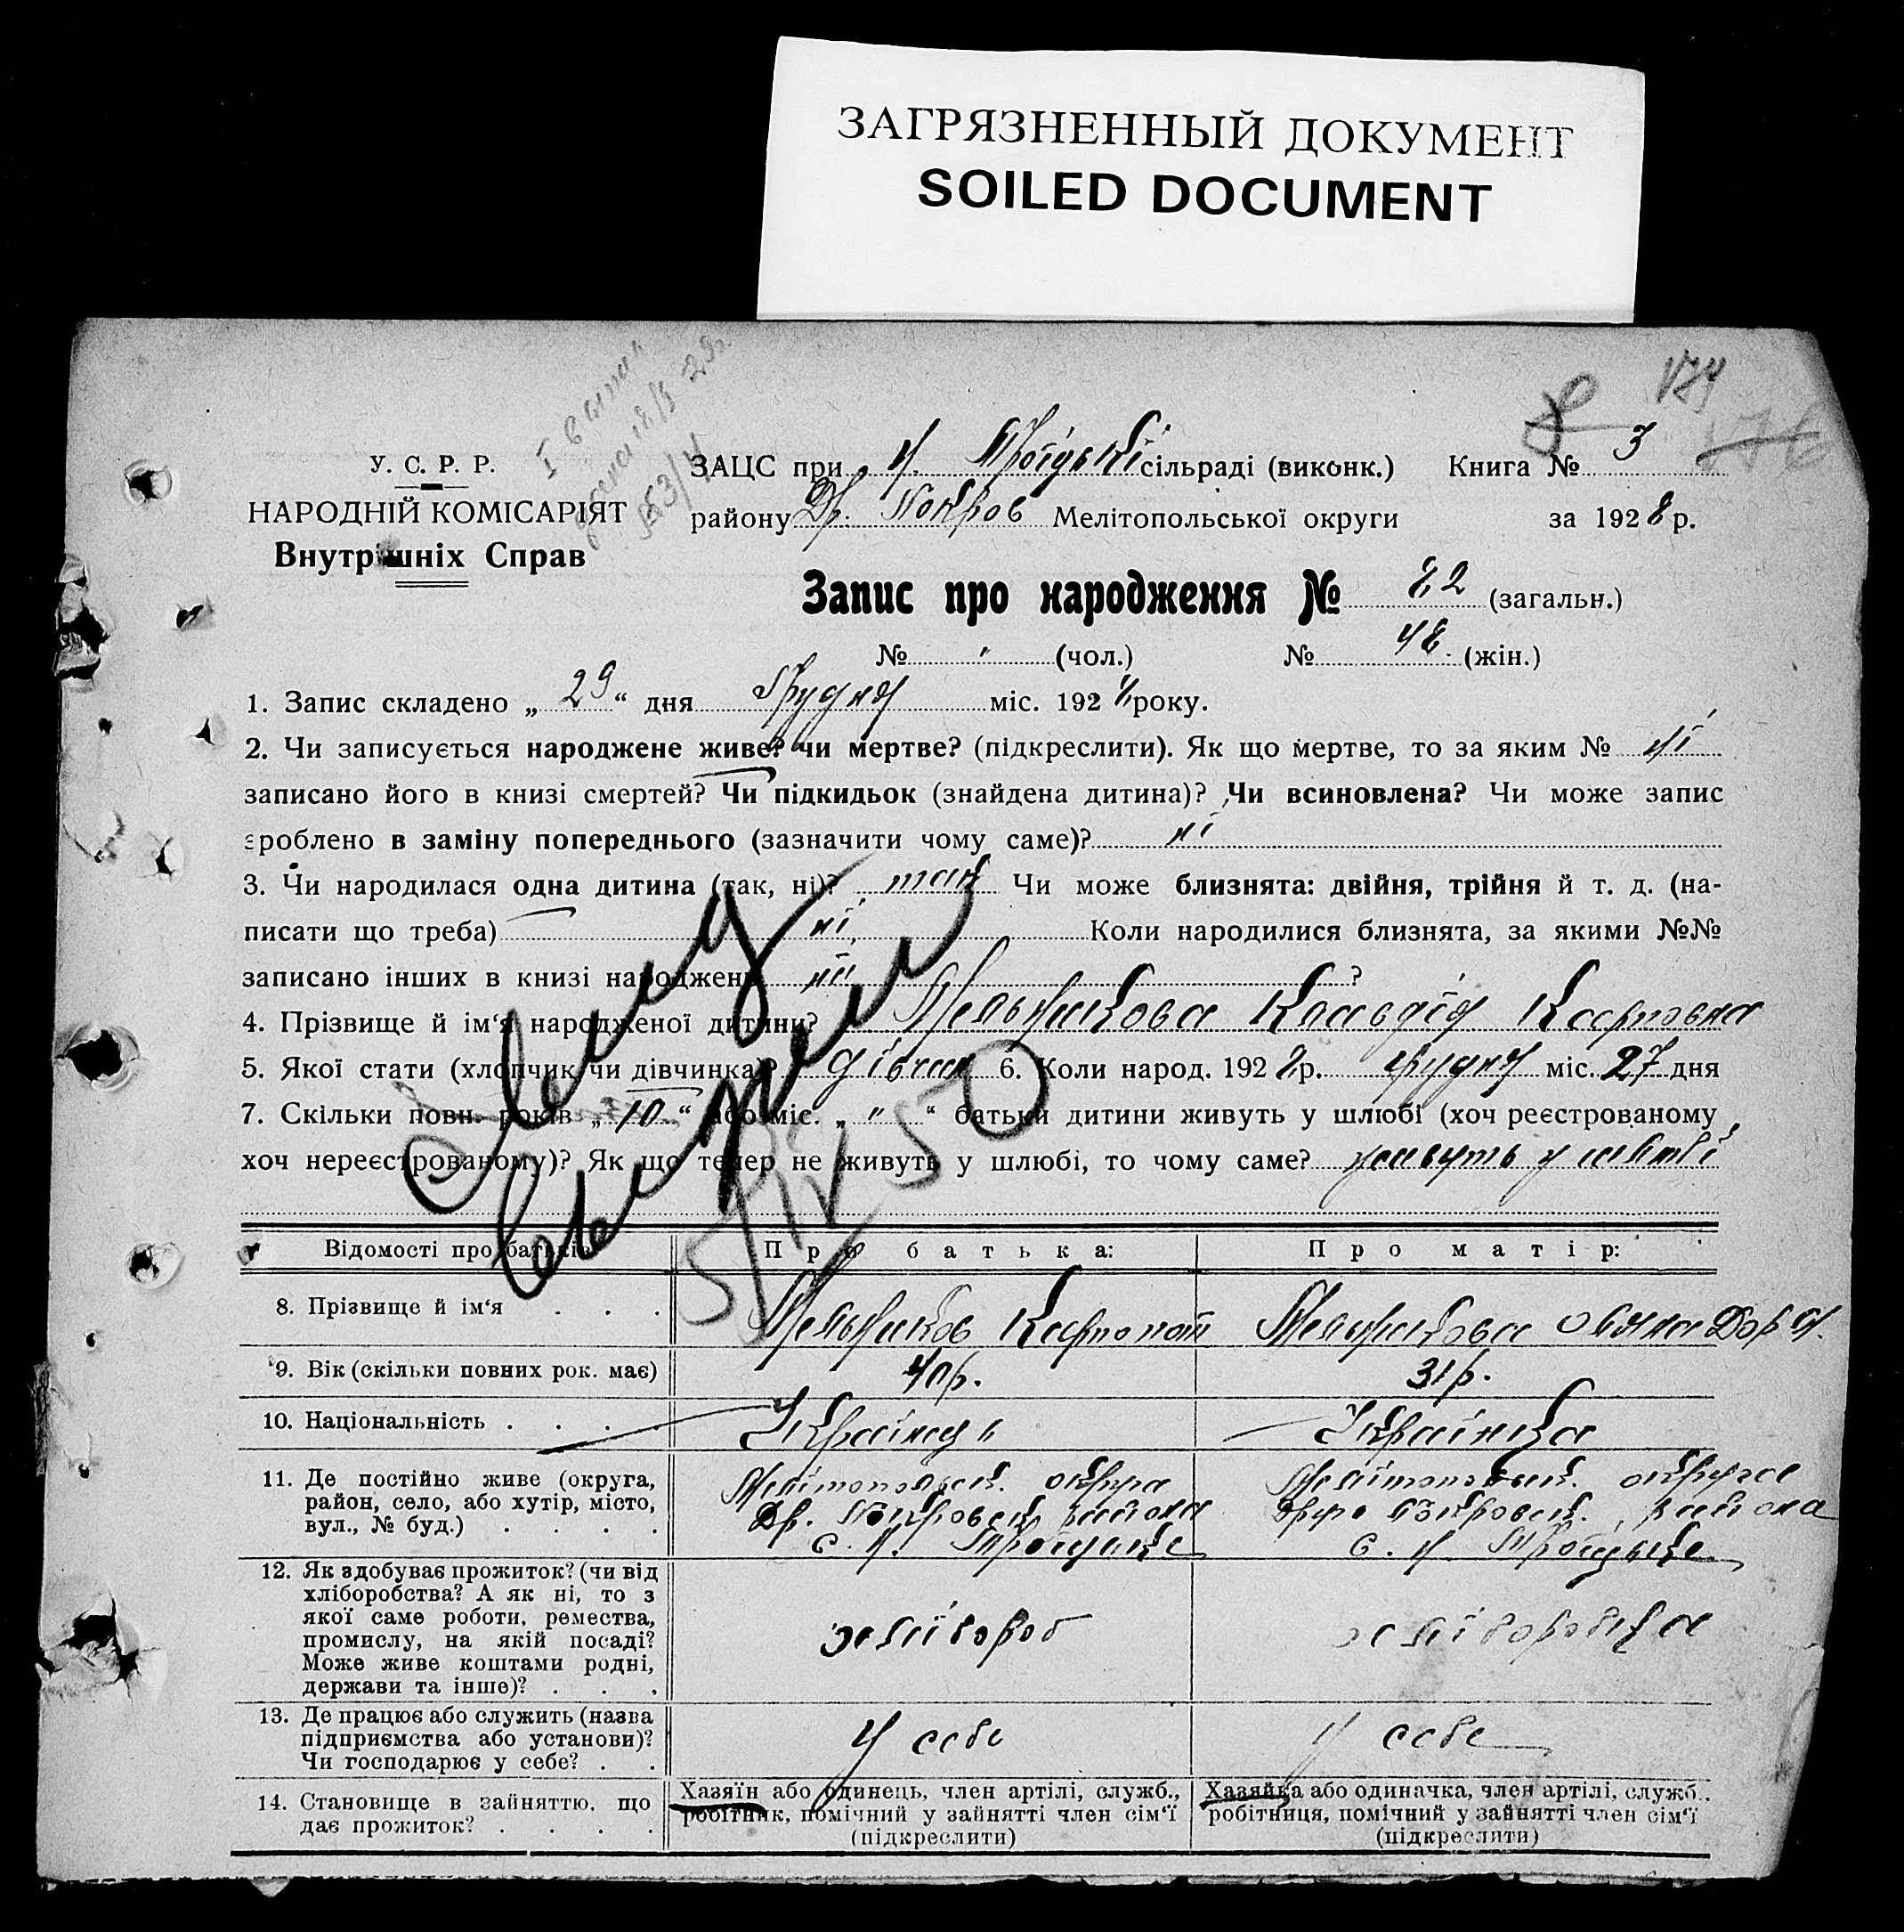 ЗАГРЯЗНЕННЫЙ ДОКУМЕНТ
SOILED DOCUMENT
У. С. Р. Р.
НАРОДНІЙ КОМІСАРІЯТ
Внутрішніх Справ
ЗАЦС при Н. Троїцькі сільраді (виконк.) Книга № 3
району Др. Покров Мелітопольської округи за 1928 р.
Запис про народження № 82 (загальн.)
№ " (чол.) № 48 (жін.)
1. Запис складено „ 29 “ дня Грудня міс. 1928 року.
2. Чи записується народжене живе? чи мертве? (підкреслити). Як що мертве, то за яким № ні
записано його в книзі смертей? Чи підкидьок (знайдена дитина)? Чи всиновлена? Чи може запис
зроблено в заміну попереднього (зазначити чому саме)? ні
3. Чи народилася одна дитина (так, ні)? так Чи може близнята: двійня, трійня й т. д. (на-
писати що треба) ні, Коли народилися близнята, за якими №№
записано інших в книзі народжень ні ?
4. Прізвище й ім‘я народженої дитини? Мельникова Клавдія Карповна
5. Якої стати (хлопчик чи дівчинка)? дівчин 6. Коли народ. 1928 р. грудня міс. 27 дня
7. Скільки повн. років „ 10 “ або міс. „ " “ батьки дитини живуть у шлюбі (хоч реєстрованому,
хоч нереєстрованому)? Як що тепер не живуть у шлюбі, то чому саме? живуть у шлюбі
Відомості про батьків Про батька: Про матір:
8. Прізвище й ім‘я . . . Мельников Карпо Мельникова
9. Вік (скільки повних рок. має) 40 р. 31 р.
10. Національність . . . . Українець Українка
11. Де постійно живе (округа, район, село, або хутір, місто, вул., № буд.) . . . .
Мелітопольск. округа
Др. Покровск. района
с. Н. Троїцьке
Мелітопольск. округа
Покровск. района
с. Н. Троїцьке
12. Як здобуває прожиток? (чи від хліборобства? А як ні, то з якої саме роботи, ремества, промислу, на якій посаді? Може живе коштами родні, держави та інше)? . . .
хлібороб
хліборобка
13. Де працює або служить (назва підприємства або установи)? Чи господарює у себе? . .
У себе
У себе
14. Становище в зайняттю, що дає прожиток? . . . .
Хазяїн або одинець, член артілі, служб., робітник, помічний у зайнятті член сім‘ї (підкреслити)
Хазяйка або одиначка, член артілі, служб., робітниця, помічний у зайнятті член сім‘ї (підкреслити)